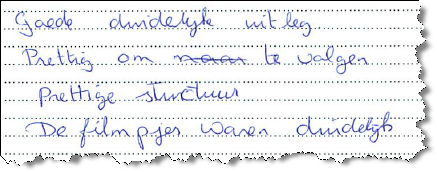 Goede duidelijke uitleg.
Prettig om naar te volgen
Prettige structuur
De filmpjes waren duidelijk